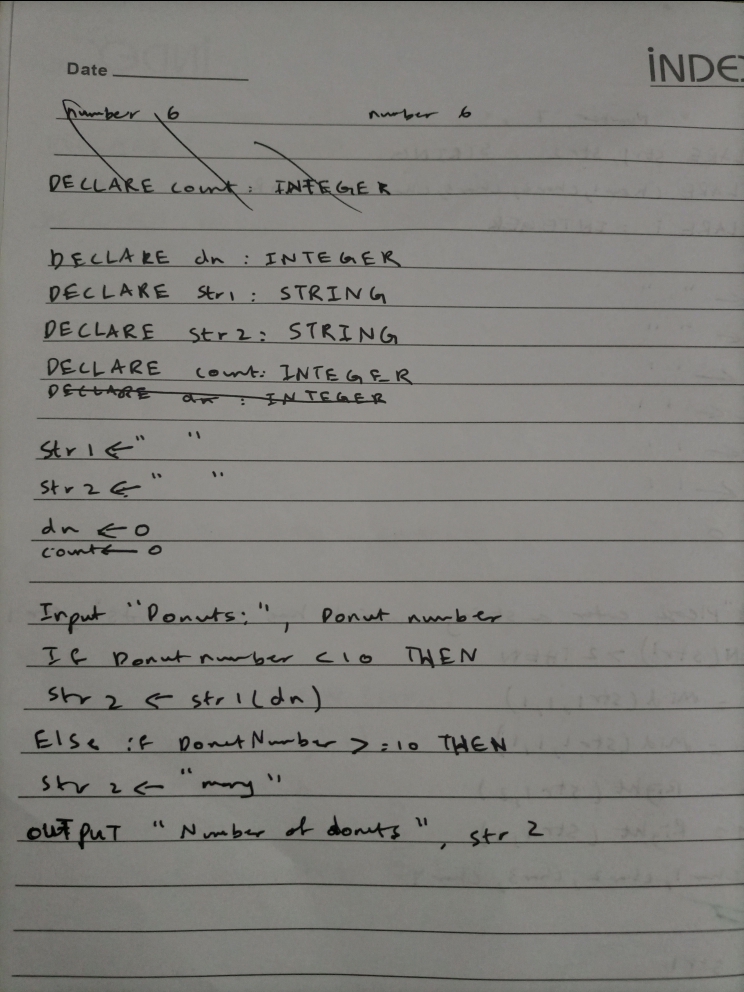 Date
INDE
number 6 number 6
DECLARE count: INTEGER
DECLARE dn : INTEGER
DECLARE str1 : STRING
DECLARE str2: STRING
DECLARE count: INTEGER
DECLARE dn : INTEGER
str1 ← " "
str2 ← " "
dn ← 0
count ← 0
Input "Donuts:", Donut number
If Donut number <10 THEN
str 2 ← str1(dn)
Else if DonutNumber >=10 THEN
str 2 ← "many"
OUTPUT "Number of donuts", str 2